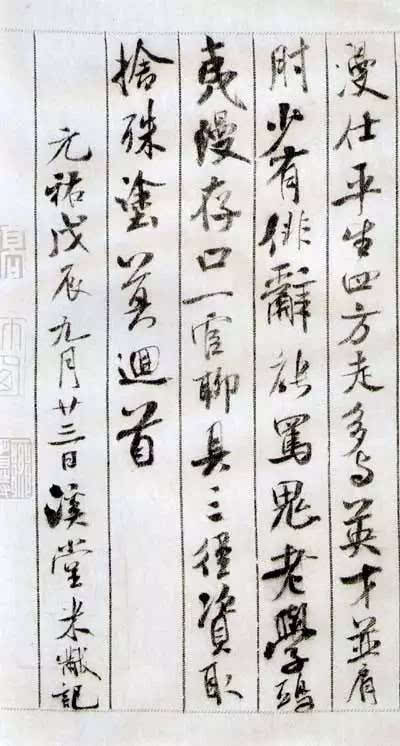 漫仕平生四方走多与英才並肩
肘少有俳辭能罵鬼老學鴟
夷漫存口一官聊具三徑資取
捨殊塗莫迴首
元祐戊辰九月廿三日溪堂米黻記